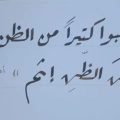 بوا كثيراً من الظن
نَ الظّنِ إثم "